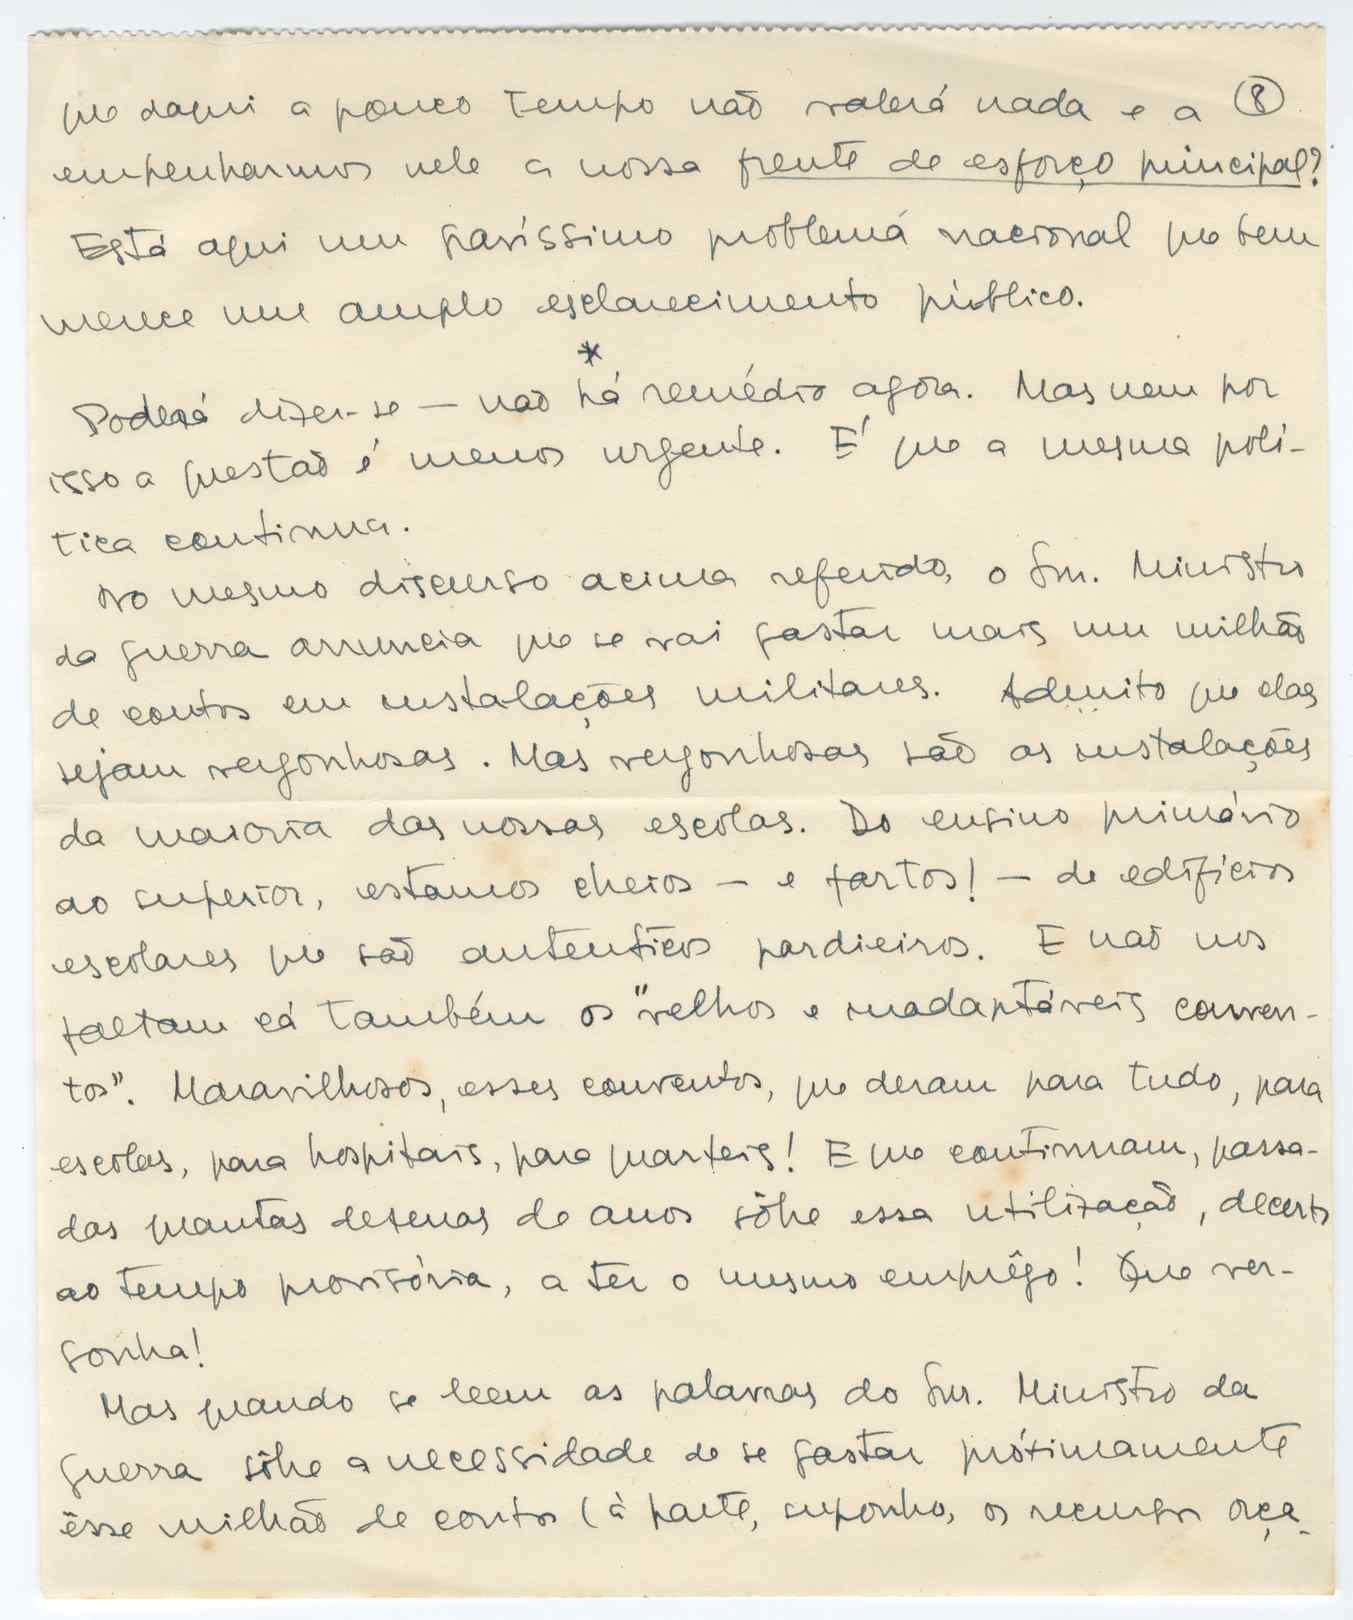 que daqui a pouco tempo não valerá nada e a (8)
empenharmos nele a nossa frente de esforço principal?
Está aqui um gravíssimo problema nacional que bem
merece um amplo esclarecimento público.
*
Poderá dizer-se — não há remédio agora. Mas nem por
isso a questão é menos urgente. E' que a mesma polí-
tica continua.
No mesmo discurso acima referido, o Snr. Ministro
da Guerra anuncia que se vai gastar mais um milhão
de contos em instalações militares. Admito que elas
sejam vergonhosas. Mas vergonhosas são as instalações
da maioria das nossas escolas. Do ensino primário
ao superior, estamos cheios — e fartos! — de edifícios
escolares que são autenticos pardieiros. E não nos
faltam cá também os "velhos e inadaptáveis conven-
tos". Maravilhosos, esses conventos, que deram para tudo, para
escolas, para hospitais, para quarteis! E que continuam, passa-
das quantas dezenas de anos sôbre essa utilização, decerto
ao tempo provisória, a ter o mesmo emprêgo! Que ver-
gonha!
Mas quando se leem as palavras do Snr. Ministro da
Guerra sôbre a necessidade de se gastar próximamente
êsse milhão de contos (à parte, suponho, os recursos orça-